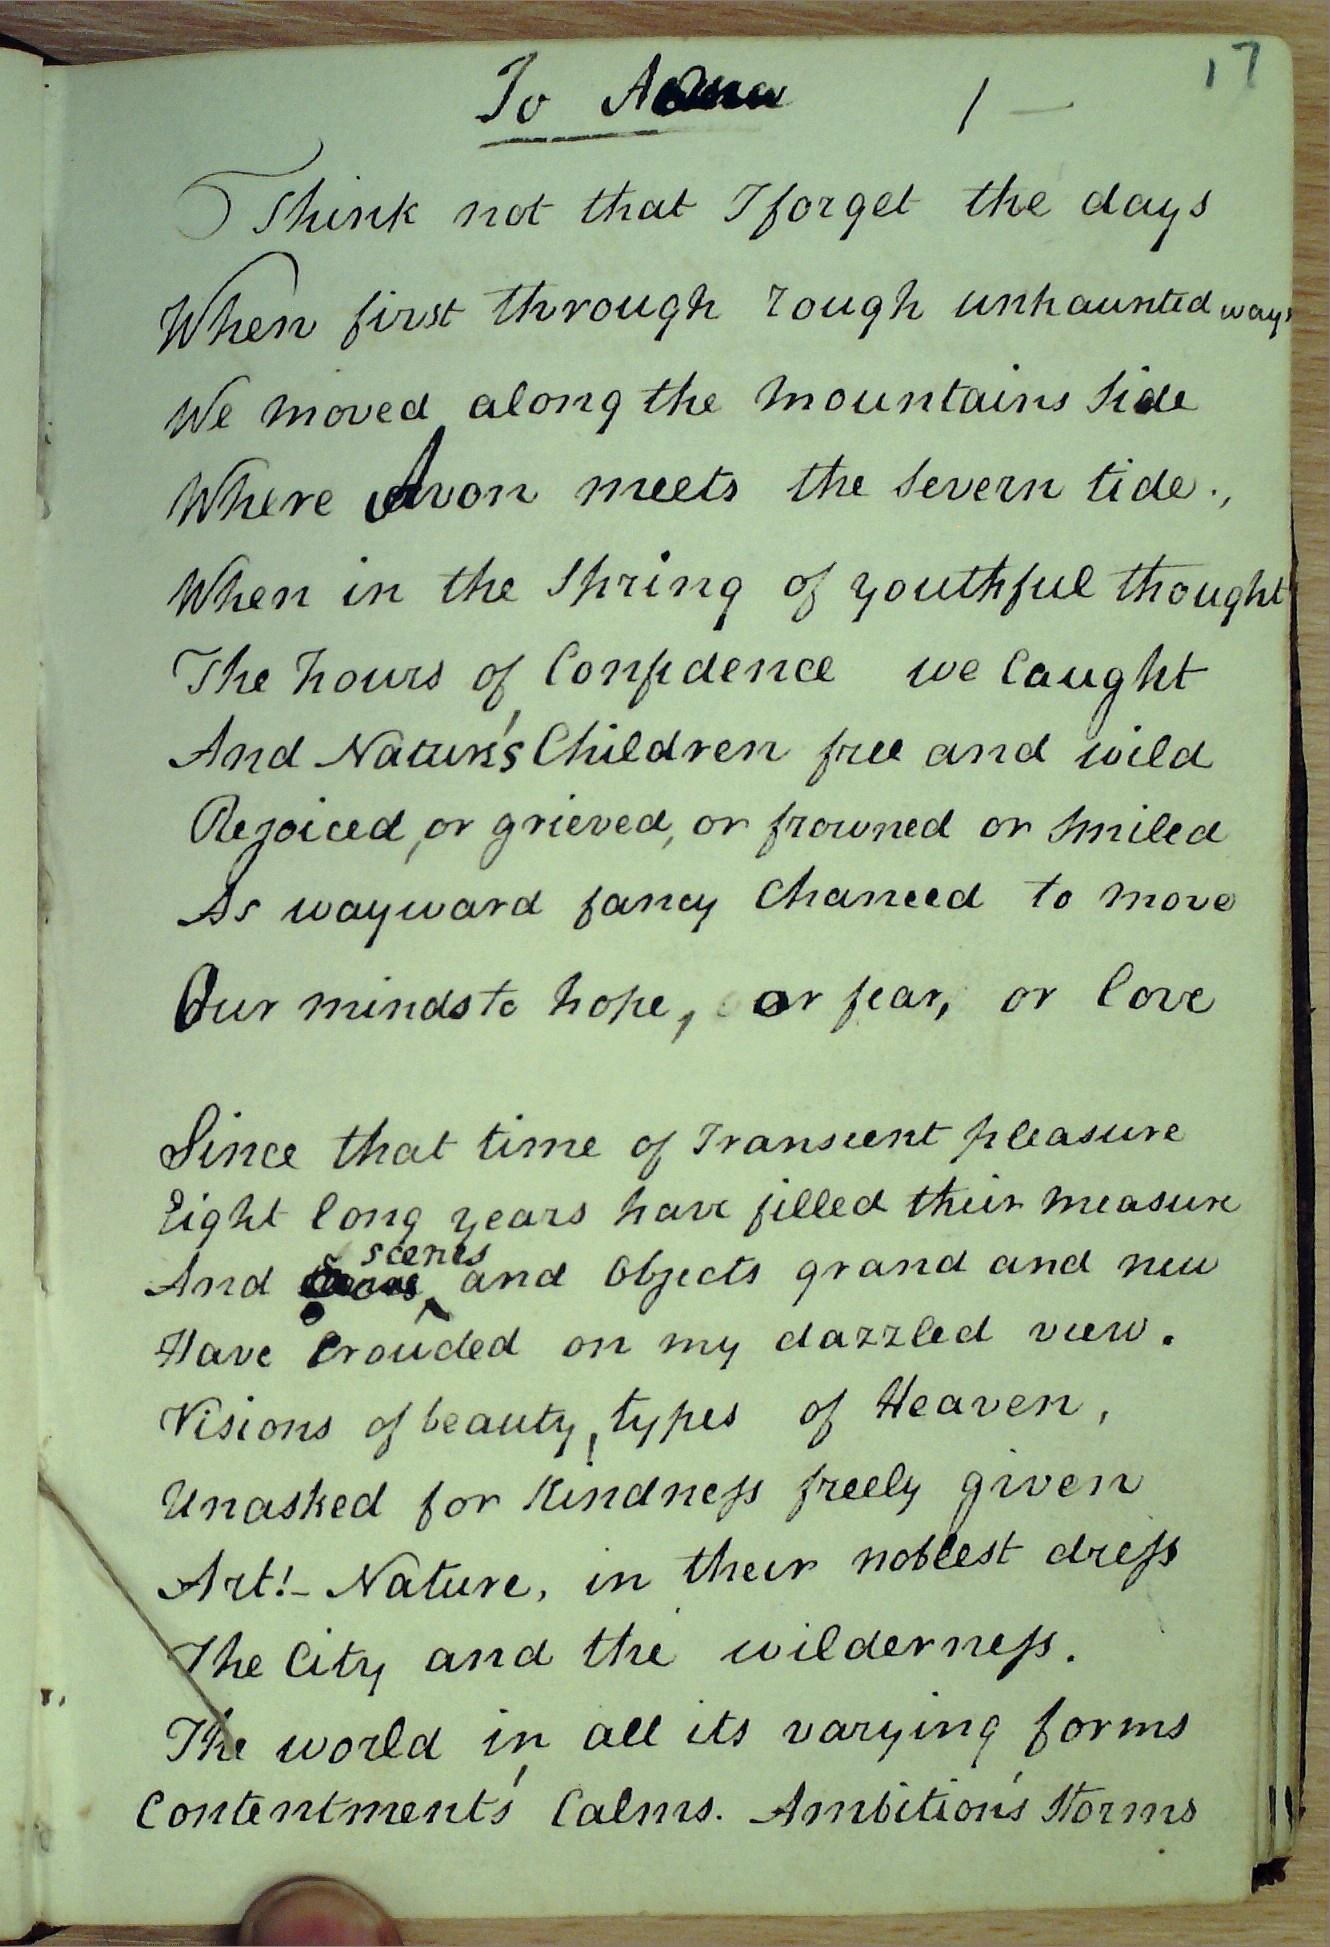 17
To Anna 1 –
Think not that I forget the days
When first through rough unhaunted ways
We moved along the mountains side
Where Avon meets the Severn tide.,
When in the Spring of youthful thought
The hours of Confidence we Caught
And Natur's Children free and wild
Rejoiced, or grieved, or frowned or smiled
As wayward fancy Chanced to move
Our minds to hope, or fear, or love
Since that time of Transient pleasure
Eight long years have filled their measure
scenes
And and Objects grand and new
Have Crouded on my dazzled view.
Visions of beauty, types of Heaven,
Unasked for Kindneſs freely given
Art!– Nature, in their noblest dreſs
The City and the wilderneſs.
The world in all its varying forms
Contentment's Calms. Ambition's Storms